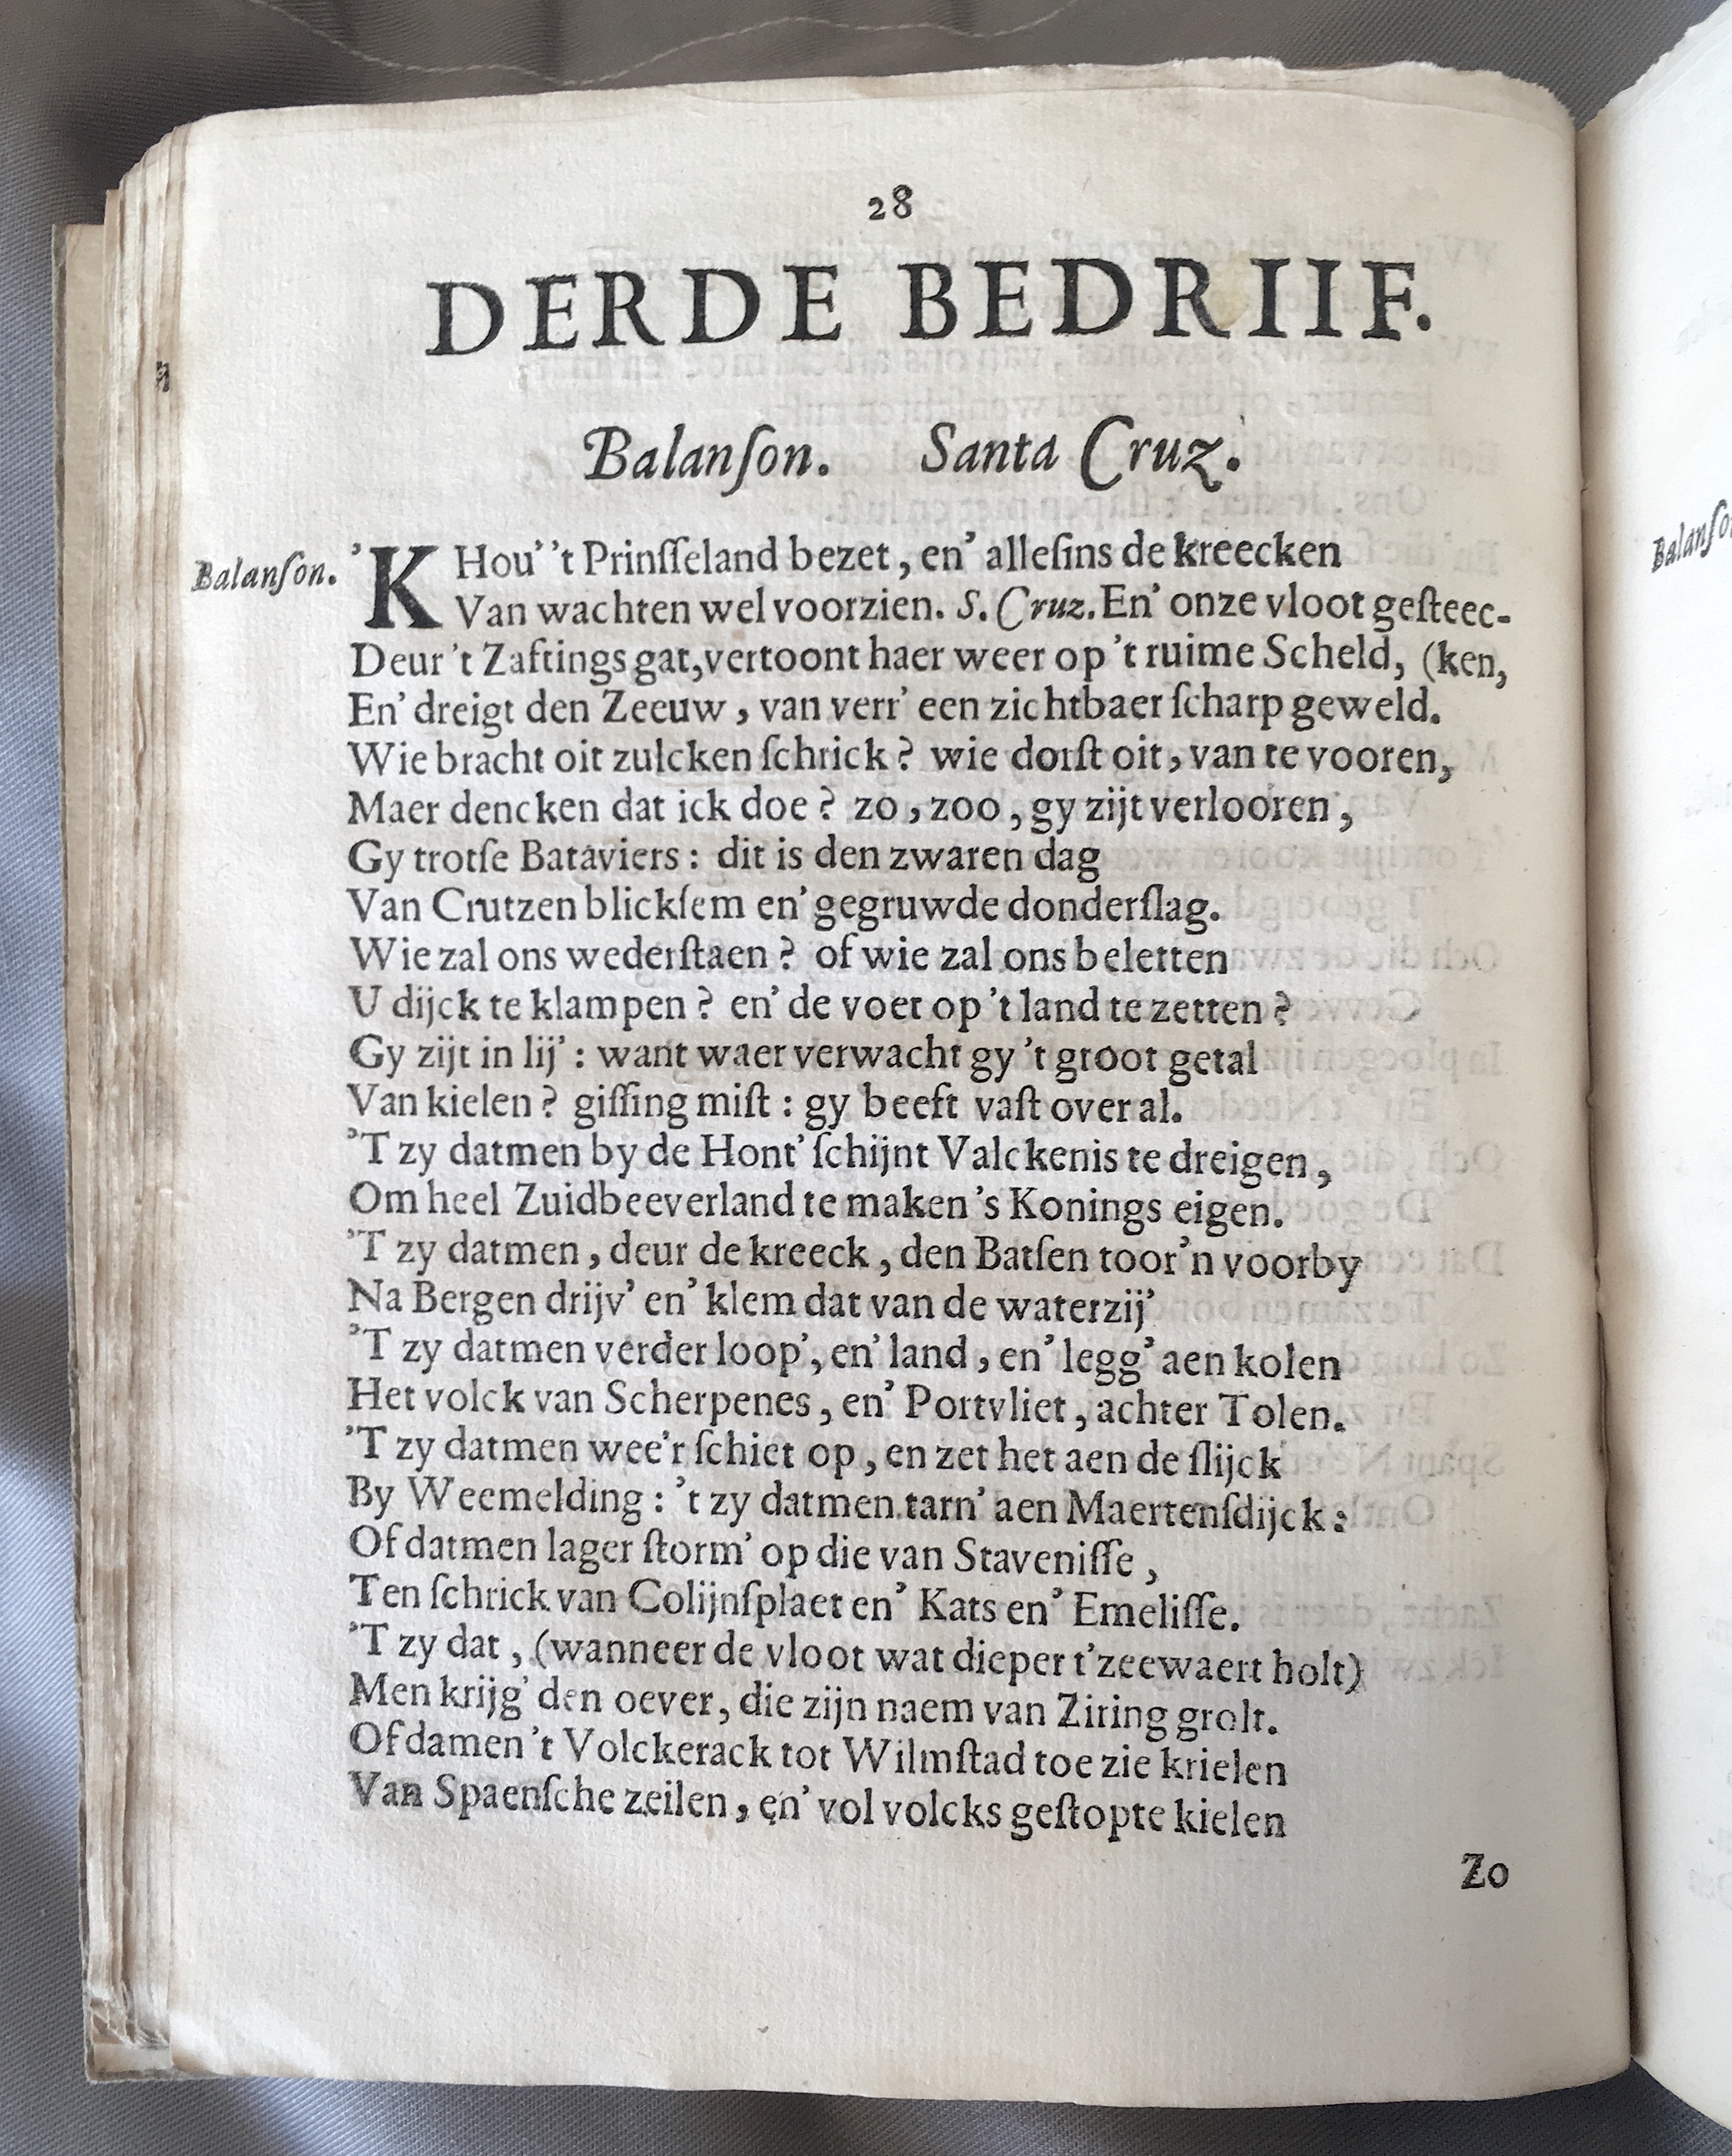 28
DERDE BEDRIIF.
Balanſon. Santa Cruz.
Balanſon. 'K Hou' 't Prinſſeland bezet, en' alleſins de kreecken
Van wachten wel voorzien. S. Cruz. En' onze vloot geſteec-
Deur 't Zaftings gat, vertoont haer weer op 't ruime Scheld, (ken,
En' dreigt den Zeeuw, van verr' een zichtbaer ſcharp geweld.
Wie bracht oit zulcken ſchrick? wie dorſt oit, van te vooren,
Maer dencken dat ick doe? zo, zoo, gy zijt verlooren,
Gy trotſe Bataviers: dit is den zwaren dag
Van Crutzen blickſem en' gegruwde donderſlag.
Wie zal ons wederſtaen? of wie zal ons beletten
U dijck te klampen? en' de voet op 't land te zetten?
Gy zijt in lij': want waer verwacht gy 't groot getal
Van kielen? giſſing miſt: gy beeft vaſt over al.
'T zy datmen by de Hont' ſchijnt Valckenis te dreigen,
Om heel Zuidbeeverland te maken 's Konings eigen.
'T zy datmen, deur de kreeck, den Batſen toor'n voorby
Na Bergen drijv' en' klem dat van de waterzij'
'T zy datmen verder loop', en' land, en' legg' aen kolen
Het volck van Scherpenes, en' Portvliet, achter Tolen.
'T zy datmen wee'r ſchiet op, en zet het aen de ſlijck
By Weemelding: 't zy datmen tarn' aen Maertenſdijck:
Of datmen lager ſtorm' op die van Staveniſſe,
Ten ſchrick van Colijnſplaet en' Kats en' Emeliſſe.
'T zy dat, (wanneer de vloot wat dieper t'zeewaert holt)
Men krijg' den oever, die zijn naem van Ziring grolt.
Of damen 't Volckerack tot Wilmſtad toe zie krielen
Van Spaenſche zeilen, en' vol volcks geſtopte kielen
Zo